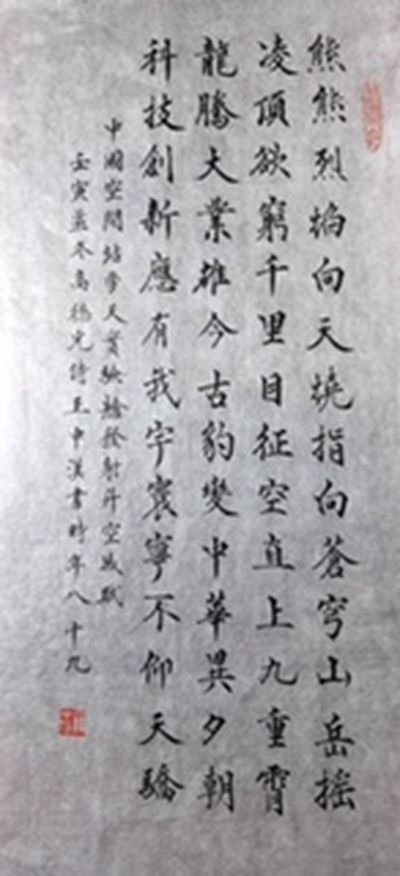 熊熊烈焰向天燒指向蒼穹山岳搖
凌頂欲窮千里目征空直上九重霄
龍騰大業雄今古豹變中華異夕朝
科技創新應有我宇寰寧不仰天驕
中國空間站夢天實驗艙發射升空感賦
壬寅孟冬高德光詩王中漢書時年八十九